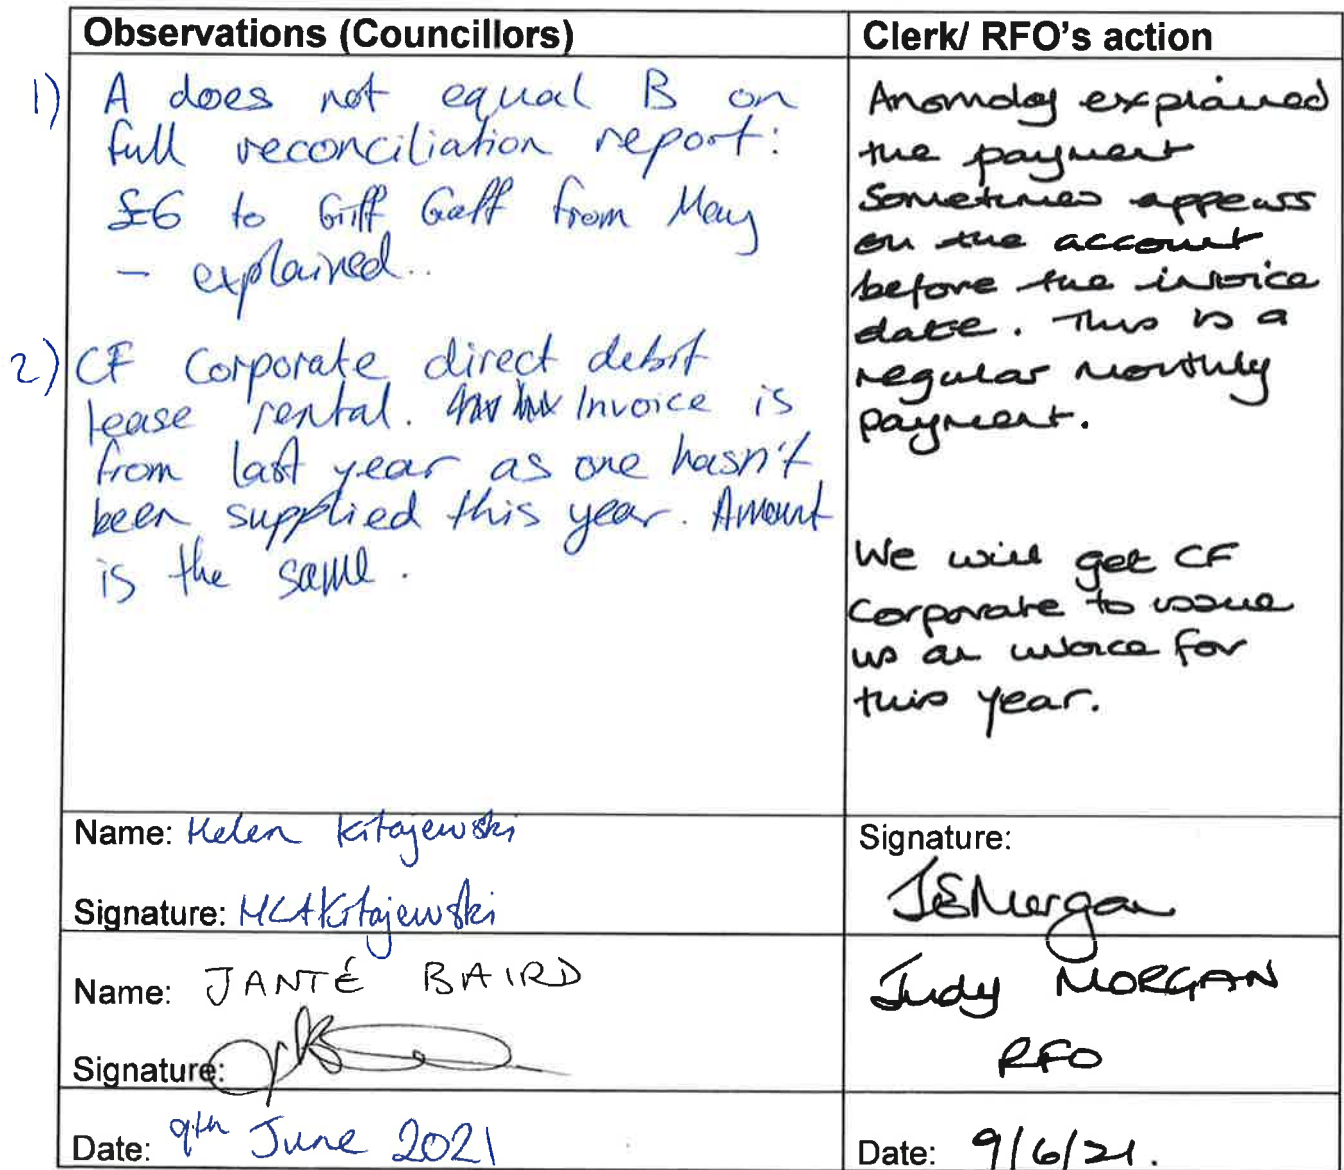 Observations (Councillors)
1) A does not equal B on
full reconciliation report:
£6 to Giff Gaff from May
- explained..
2) CF Corporate direct debit
lease rental. Invoice is
from last year as one hasn't
been supplied this year. Amount
is the same.
Clerk/ RFO's action
Anomaly explained
the payment
Sometimes appears
on the account
before the invoice
date. This is a
regular monthly
payment.
We will get CF
Corporate to issue
us an invoice for
this year.
Name: Helen Kitajewski
Signature: HCAKitajewski
Signature:
JSMorgan
Name: JANTÉ BAIRD
Signature:
Judy MORGAN
RFO
Date: 9th June 2021
Date: 9/6/21.